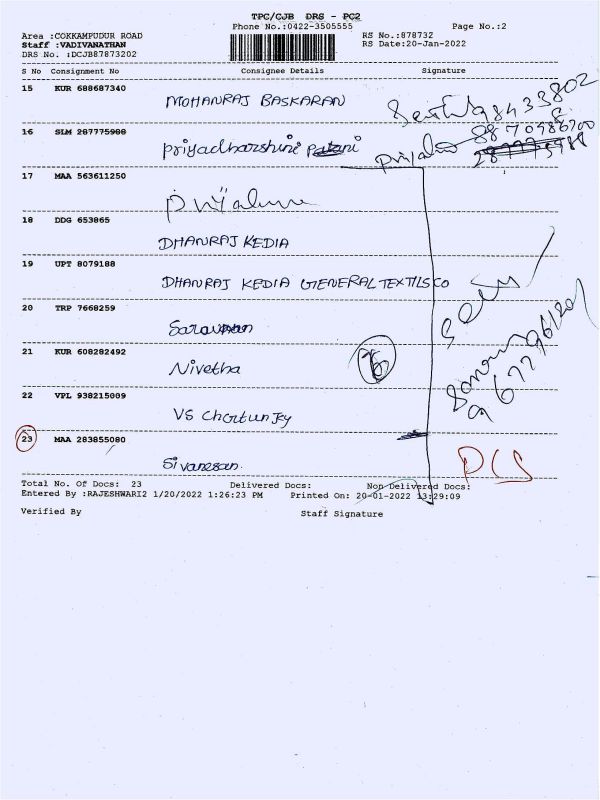 TPC/CJB DRS - PC2
Phone No.:0422-3505555 Page No.:2
Area :COKKAMPUDUR ROAD RS No.:878732
Staff :VADIVANATHAN RS Date:20-Jan-2022
DRS No. :DCJB87873202
S No Consignment No Consignee Details Signature
15 KUR 688687340 MOHANRAJ BASKARAN
16 SLM 287775988 Priyadharshini
17 MAA 563611250
18 DDG 653865 DHANRAJ KEDIA
19 UPT 8079188 DHANRAJ KEDIA GENERAL TEXTILS CO
20 TRP 7668259 Saravanan
21 KUR 608282492 Nivetha 76
22 VPL 938215009 VS
23 MAA 283855080 Sivanesan.
Total No. Of Docs: 23 Delivered Docs: Non Delivered Docs:
Entered By :RAJESHWARI2 1/20/2022 1:26:23 PM Printed On: 20-01-2022 13:29:09
Verified By Staff Signature